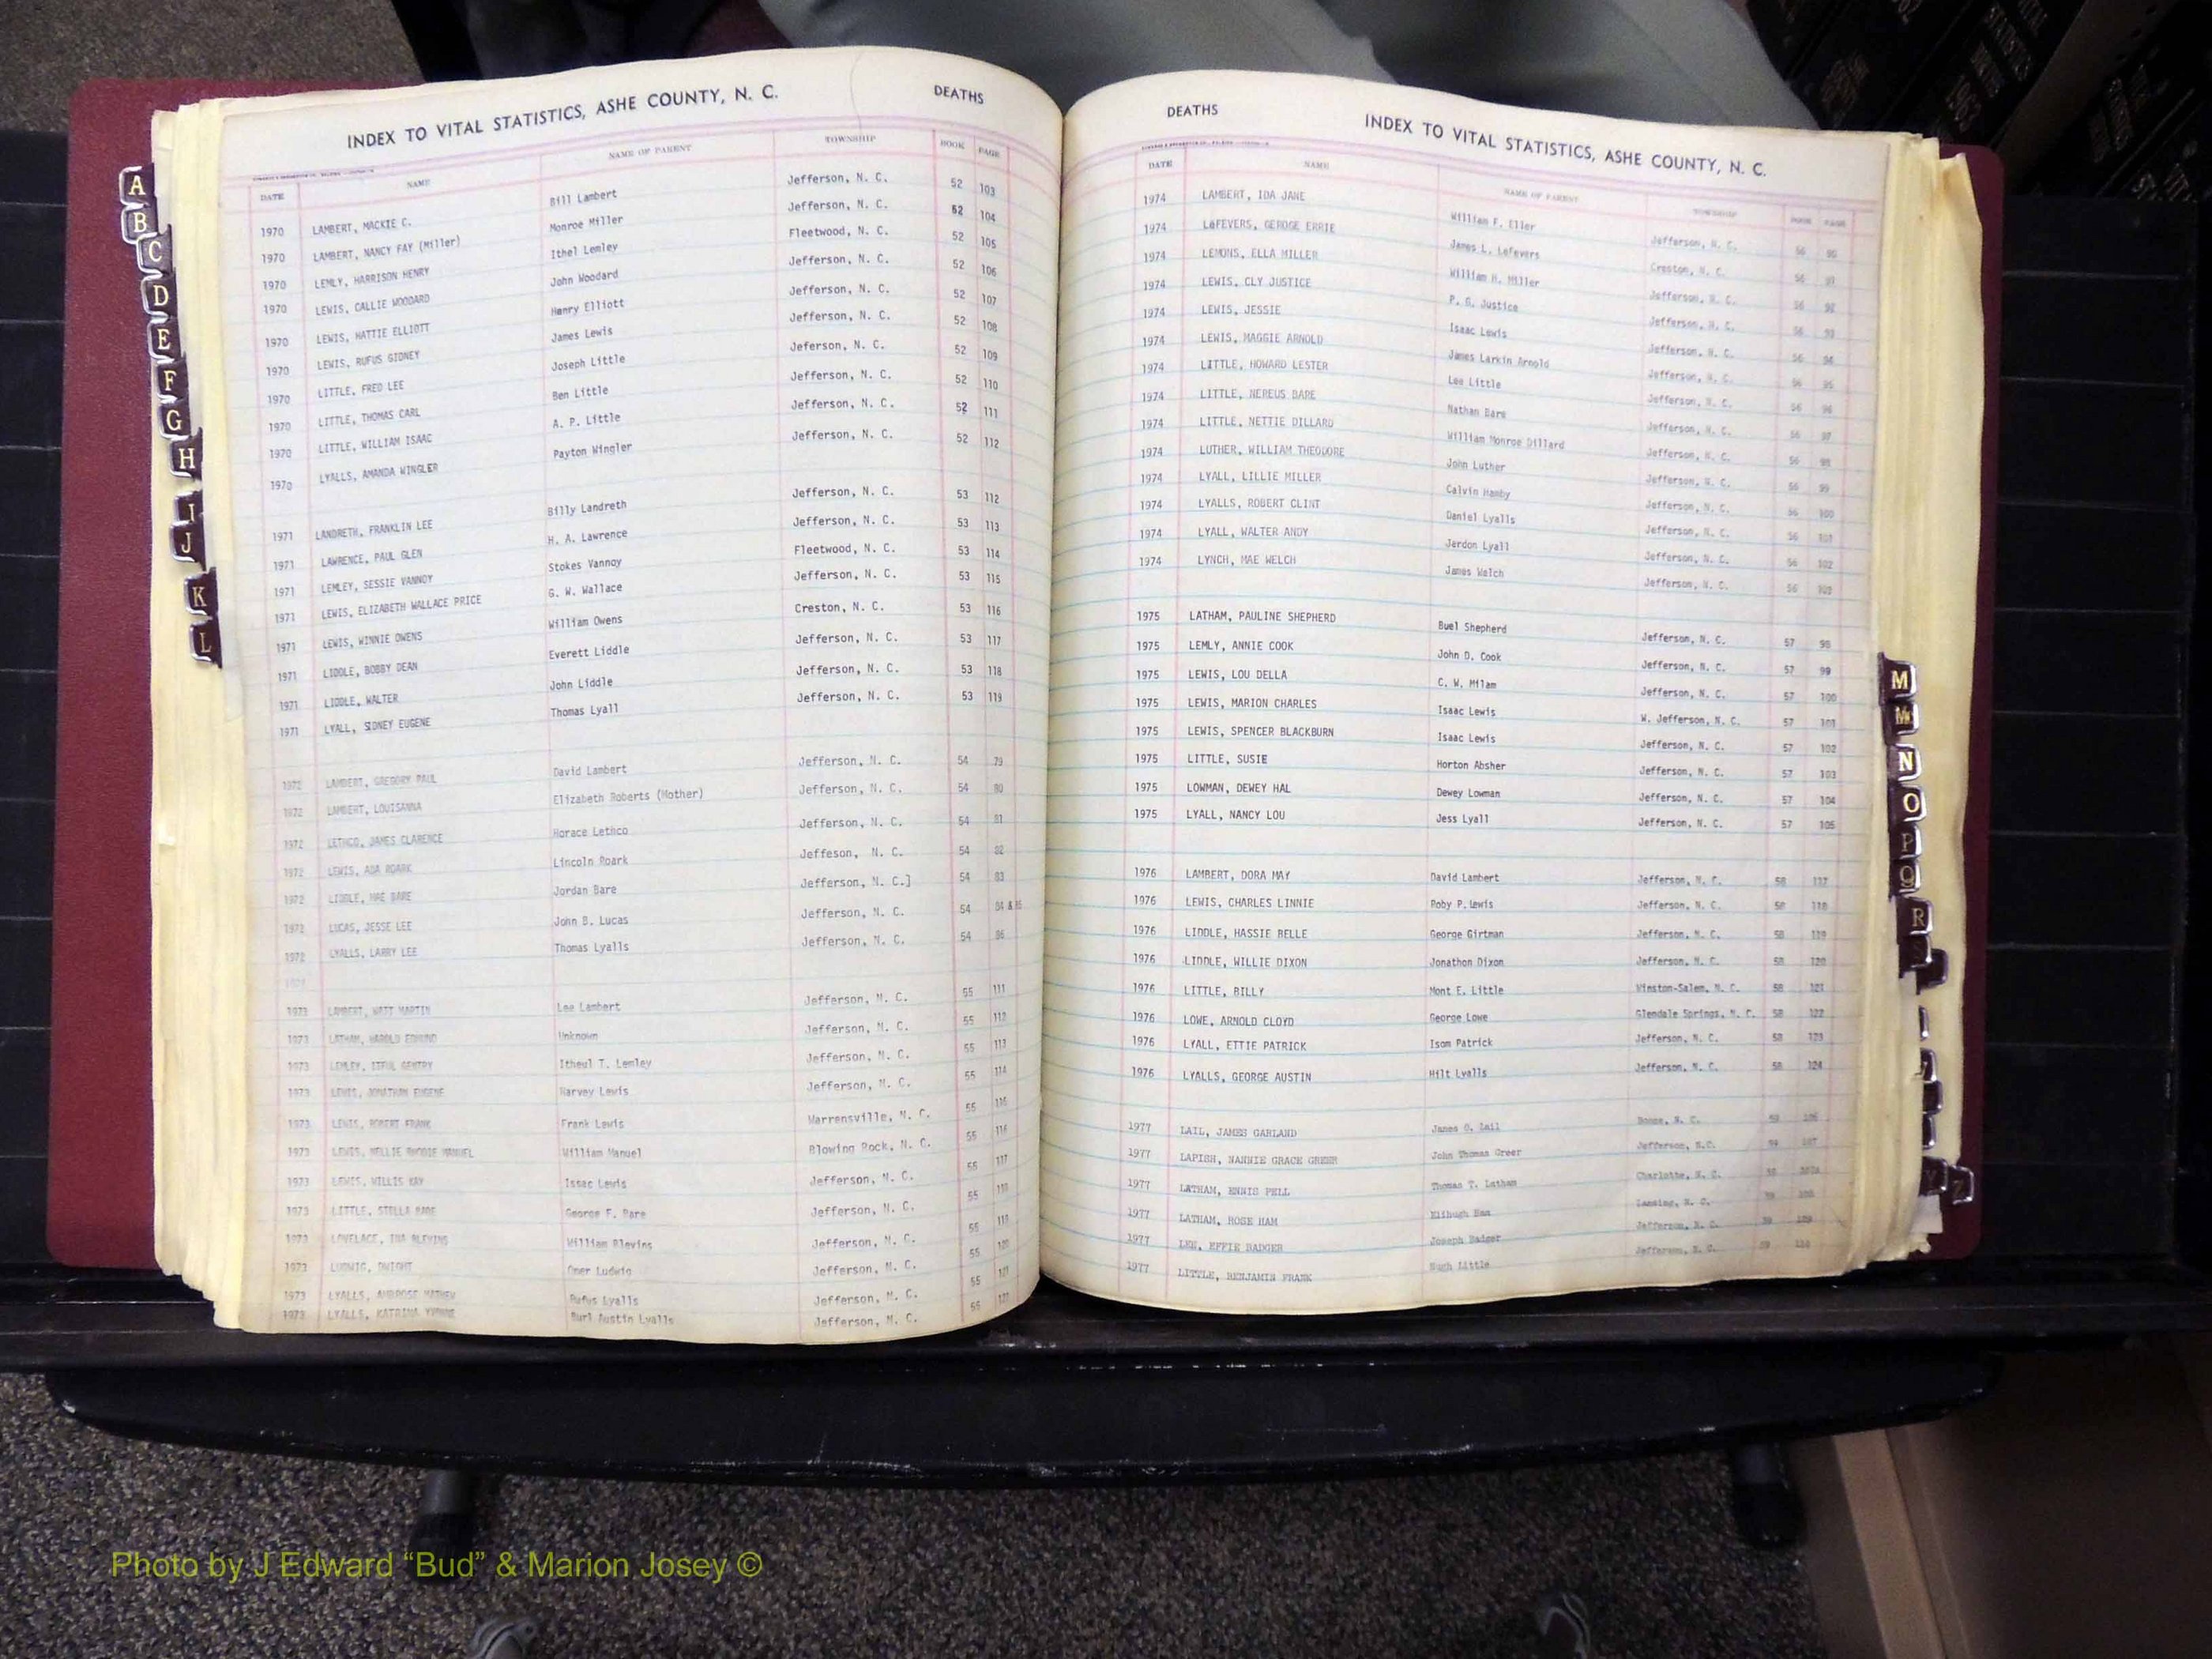 INDEX TO VITAL STATISTICS, ASHE COUNTY, N. C. DEATHS
DATE NAME NAME OF PARENT TOWNSHIP BOOK PAGE
1970 LAMBERT, MACKIE C. Bill Lambert Jefferson, N. C. 52 103
1970 LAMBERT, NANCY FAY (Miller) Monroe Miller Jefferson, N. C. 52 104
1970 LEMLY, HARRISON HENRY Ithel Lemley Fleetwood, N. C. 52 105
1970 LEWIS, CALLIE WOODARD John Woodard Jefferson, N. C. 52 106
1970 LEWIS, HATTIE ELLIOTT Henry Elliott Jefferson, N. C. 52 107
1970 LEWIS, RUFUS GIDNEY James Lewis Jefferson, N. C. 52 108
1970 LITTLE, FRED LEE Joseph Little Jeferson, N. C. 52 109
1970 LITTLE, THOMAS CARL Ben Little Jefferson, N. C. 52 110
1970 LITTLE, WILLIAM ISAAC A. P. Little Jefferson, N. C. 52 111
1970 LYALLS, AMANDA WINGLER Payton Wingler Jefferson, N. C. 52 112
1971 LANDRETH, FRANKLIN LEE Billy Landreth Jefferson, N. C. 53 112
1971 LAWRENCE, PAUL GLEN H. A. Lawrence Jefferson, N. C. 53 113
1971 LEMLEY, SESSIE VANNOY Stokes Vannoy Fleetwood, N. C. 53 114
1971 LEWIS, ELIZABETH WALLACE PRICE G. W. Wallace Jefferson, N. C. 53 115
1971 LEWIS, WINNIE OWENS William Owens Creston, N. C. 53 116
1971 LIDDLE, BOBBY DEAN Everett Liddle Jefferson, N. C. 53 117
1971 LIDDLE, WALTER John Liddle Jefferson, N. C. 53 118
1971 LYALL, SIDNEY EUGENE Thomas Lyall Jefferson, N. C. 53 119
1972 LAMBERT, GREGORY PAUL David Lambert Jefferson, N. C. 54 79
1972 LAMBERT, LOUISANNA Elizabeth Roberts (Mother) Jefferson, N. C. 54 80
1972 LETHCO, JAMES CLARENCE Horace Lethco Jefferson, N. C. 54 81
1972 LEWIS, ADA ROARK Lincoln Roark Jeffeson, N. C. 54 82
1972 LIDDLE, MAE BARE Jordan Bare Jefferson, N. C.] 54 83
1972 LUCAS, JESSE LEE John B. Lucas Jefferson, N. C. 54 84 & 85
1972 LYALLS, LARRY LEE Thomas Lyalls Jefferson, N. C. 54 86
1973 LAMBERT, WATT MARTIN Lee Lambert Jefferson, N. C. 55 111
1973 LATHAM, HAROLD EDMUND Unknown Jefferson, N. C. 55 112
1973 LEMLEY, GENTRY Itheul T. Lemley Jefferson, N. C. 55 113
1973 LEWIS, JONATHAN EUGENE Harvey Lewis Jefferson, N. C. 55 114
1973 LEWIS, ROBERT FRANK Frank Lewis Warrensville, N. C. 55
1973 LEWIS, NELLIE RHODIE MANUEL William Manuel Blowing Rock, N. C. 55 116
1973 LEWIS, WILLIS RAY Issac Lewis Jefferson, N. C. 55 117
1973 LITTLE, STELLA BARE George F. Bare Jefferson, N. C. 55 118
1973 LOVELACE, INA BLEVINS William Blevins Jefferson, N. C. 55 119
1973 LUDWIG, DWIGHT Omer Ludwig Jefferson, N. C. 55 120
1973 LYALLS, AMBROSE MATHEW Rufus Lyalls Jefferson, N. C. 55 121
1973 LYALLS, KATRINA YVONNE Burl Austin Lyalls Jefferson, N. C. 55
DEATHS INDEX TO VITAL STATISTICS, ASHE COUNTY, N. C.
DATE NAME NAME OF PARENT TOWNSHIP BOOK PAGE
1974 LAMBERT, IDA JANE William F. Eller Jefferson, N. C. 56 90
1974 LeFEVERS, GEROGE ERRIE James L. Lefevers Creston, N. C. 56 91
1974 LEMONS, ELLA MILLER William H. Miller Jefferson, N. C. 56 92
1974 LEWIS, CLY JUSTICE P. G. Justice Jefferson, N. C. 56 93
1974 LEWIS, JESSIE Isaac Lewis Jefferson, N. C. 56 94
1974 LEWIS, MAGGIE ARNOLD James Larkin Arnold Jefferson, N. C. 56 95
1974 LITTLE, HOWARD LESTER Lee Little Jefferson, N. C. 56 96
1974 LITTLE, NEREUS BARE Nathan Bare Jefferson, N. C. 56 97
1974 LITTLE, NETTIE DILLARD William Monroe Dillard Jefferson, N. C. 56 98
1974 LUTHER, WILLIAM THEODORE John Luther Jefferson, N. C. 56 99
1974 LYALL, LILLIE MILLER Calvin Hamby Jefferson, N. C. 56 100
1974 LYALLS, ROBERT CLINT Daniel Lyalls Jefferson, N. C. 56 101
1974 LYALL, WALTER ANDY Jerdon Lyall Jefferson, N. C. 56 102
1974 LYNCH, MAE WELCH James Welch Jefferson, N. C. 56 103
1975 LATHAM, PAULINE SHEPHERD Buel Shepherd Jefferson, N. C. 57 98
1975 LEMLY, ANNIE COOK John D. Cook Jefferson, N. C. 57 99
1975 LEWIS, LOU DELLA C. W. Milam Jefferson, N. C. 57 100
1975 LEWIS, MARION CHARLES Isaac Lewis W. Jefferson, N. C. 57 101
1975 LEWIS, SPENCER BLACKBURN Isaac Lewis Jefferson, N. C. 57 102
1975 LITTLE, SUSIE Horton Absher Jefferson, N. C. 57 103
1975 LOWMAN, DEWEY HAL Dewey Lowman Jefferson, N. C. 57 104
1975 LYALL, NANCY LOU Jess Lyall Jefferson, N. C. 57 105
1976 LAMBERT, DORA MAY David Lambert Jefferson, N. C. 58 117
1976 LEWIS, CHARLES LINNIE Roby P. Lewis Jefferson, N. C. 58 118
1976 LIDDLE, HASSIE BELLE George Girtman Jefferson, N. C. 58 119
1976 LIDDLE, WILLIE DIXON Jonathon Dixon Jefferson, N. C. 58 120
1976 LITTLE, BILLY Mont E. Little Winston-Salem, N. C. 58 121
1976 LOWE, ARNOLD CLOYD George Lowe Glendale Springs, N. C. 58 122
1976 LYALL, ETTIE PATRICK Isom Patrick Jefferson, N. C. 58 123
1976 LYALLS, GEORGE AUSTIN Hilt Lyalls Jefferson, N. C. 58 124
1977 LAIL, JAMES GARLAND James O. Lail Boone, N. C. 59 106
1977 LAPISH, NANNIE GRACE GREER John Thomas Greer Jefferson, N.C. 59 107
1977 LATHAM, ENNIS PELL Thomas T. Latham Charlotte, N. C. 59
1977 LATHAM, ROSE HAM Elihugh Ham Lansing, N. C. 59 108
1977 LEE, EFFIE BADGER Joseph Badger Jefferson, N. C. 59 109
1977 LITTLE, BENJAMIN FRANK Hugh Little Jefferson, N. C. 59 110
A
B
C
D
E
F
G
H
I
J
K
L
M
Mc
N
O
P
Q
R
Z
1963
Photo by J Edward “Bud” & Marion Josey ©